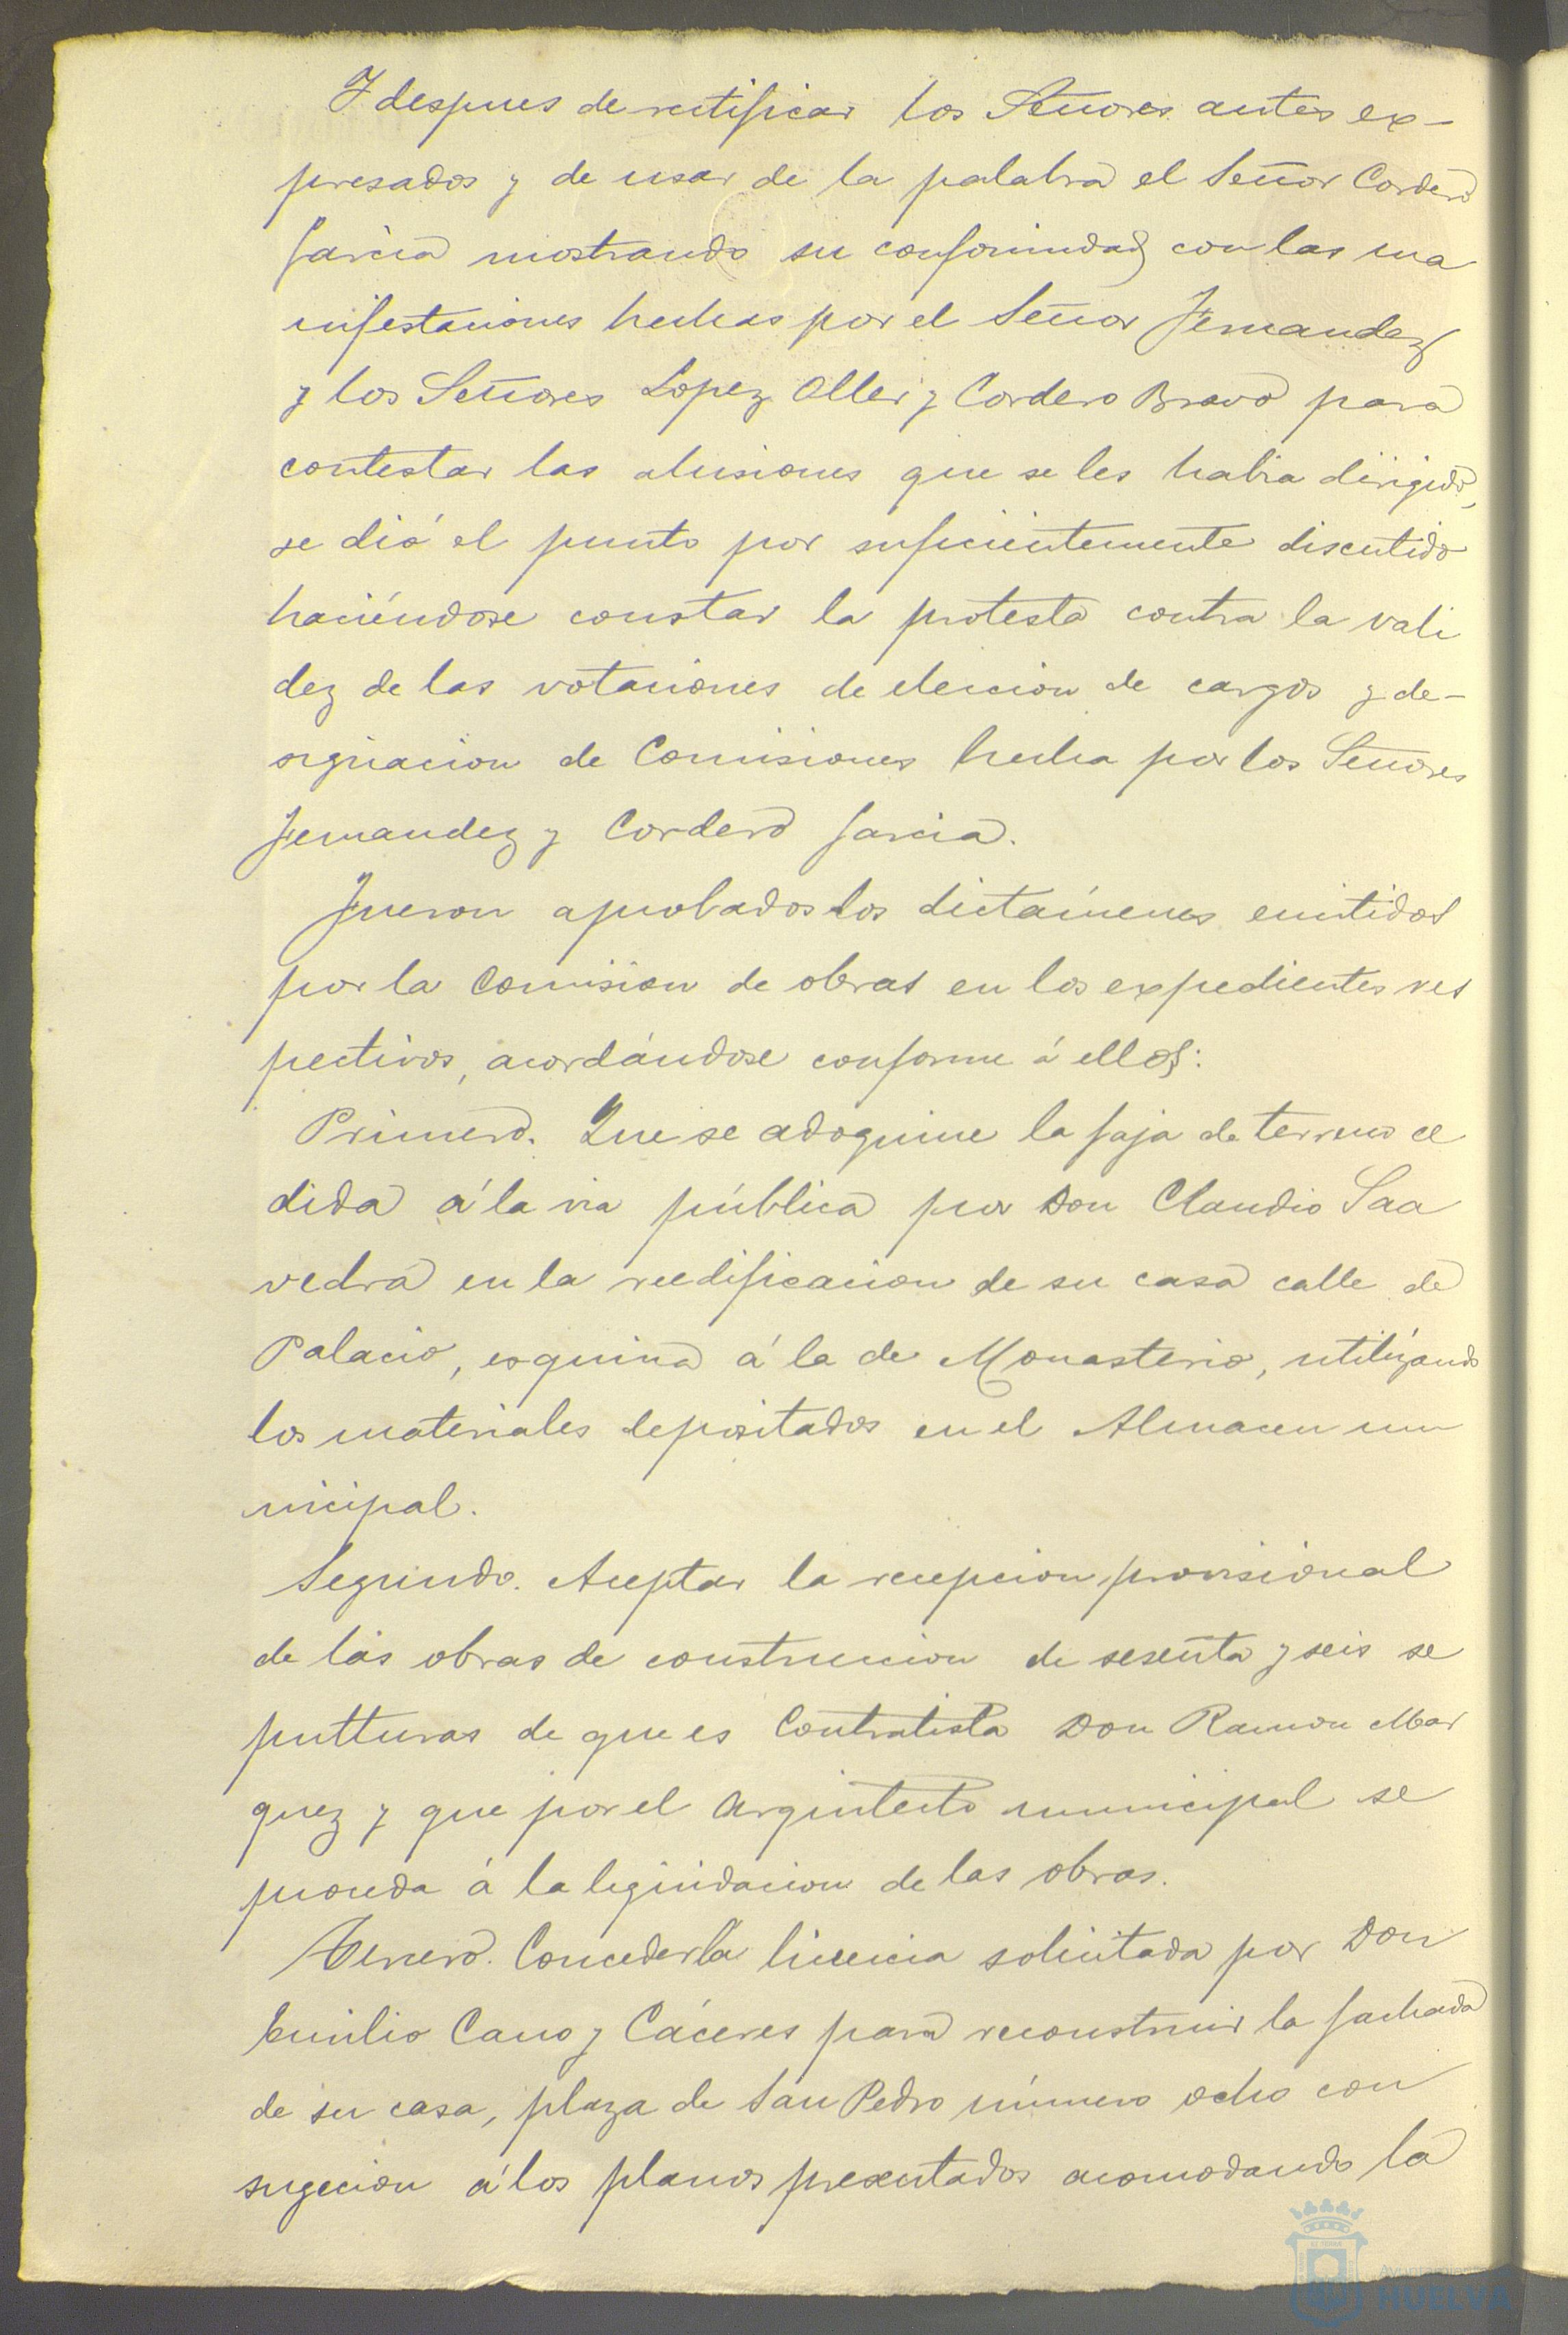 Y despues de rectificar los Señores antes ex-
presados y de usar de la palabra el Señor Cordero
Garcia mostrando su conformidad con las ma
nifestaciones hechas por el Señor Fernandez
y los Señores Lopez Oller y Cordero Bravo para
contestar las alusiones que se les habia dirigido,
se dió el punto por suficientemente discutido
haciéndose constar la protesta contra la vali
dez de las votaciones de eleccion de cargos y de-
signacion de Comisiones hecha por los Señores
Fernandez y Cordero Garcia.
Fueron aprobados los dictámenes emitidos
por la Comision de obras en los expedientes res
pectivos, acordándose conforme á ellos:
Primero. Que se adoquine la faja de terreno ce
dida á la via pública por Don Claudio Saa
vedra en la reedificacion de su casa calle de
Palacio, esquina á la de Monasterio, utilizando
los materiales depositados en el Almacen mu
nicipal.
Segundo. Aceptar la recepcion provisional
de las obras de construccion de sesenta y seis se
pulturas de que es Contratista Don Ramon Mar
quez y que por el Arquitecto municipal se
proceda á la liquidacion de las obras.
Tercero. Conceder la licencia solicitada por Don
Emilio Cano y Cáceres para reconstruir la fachada
de su casa, plaza de San Pedro número ocho con
sugecion á los planos presentados acomodando la
HUELVA